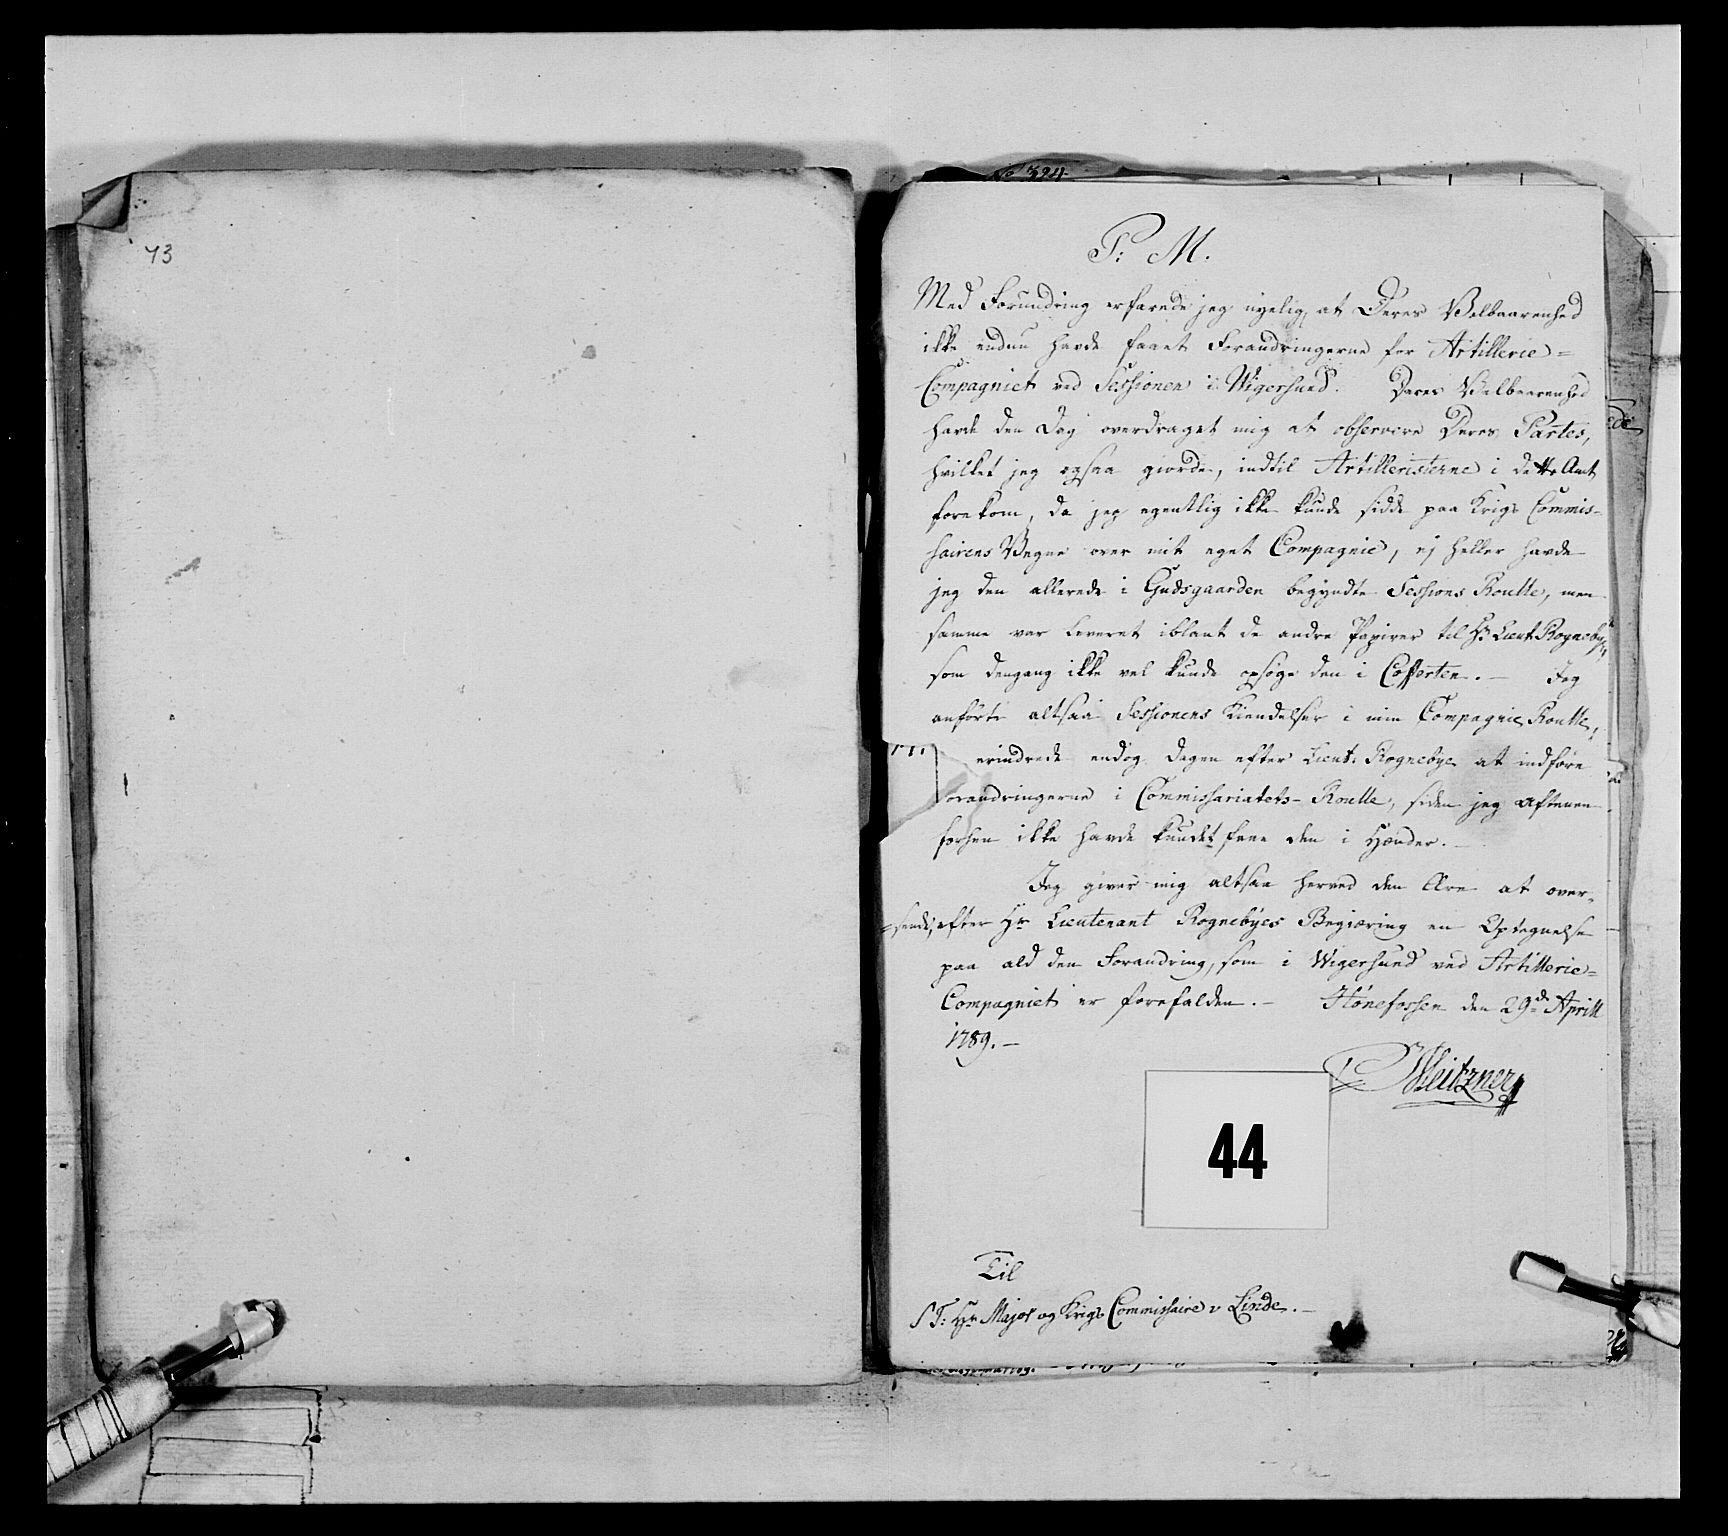 43
No 324
P: M.
Med Forundring erfarede jeg nyelig, at Deres Velbaarenhed
ikke endnu havde faaet Forandringerne for Artillerie=
Compagniet ved Sessionen i Wigersund. Deres Velbaarenhed
havde den Dag overdraget mig at observere Deres Partes,
hvilket jeg ogsaa giorde, indtil Artilleristerne i dette Amt
forekom, da jeg egentlig ikke kunde sidde paa Krigs Commis-
sairens Vegne over mit eget Compagnie, ej heller havde
jeg den allerede i Gudsgaarden begyndte Sessions Roulle, men
samme var leveret iblant de andre Papirer til Hr Lieut Rognebye,
som dengang ikke vel kunde opsøge den i Cofferten. - Jeg
anførte altsaa Sessionens Kiendelser i min Compagnie Roulle,
erindrede endog Dagen efter Lieut: Rognebye at indføre
Forandringerne i Commissariatets- Roulle, siden jeg Aftenen
forhen ikke havde kundet faae den i Hænder. -
Jeg giver mig altsaa herved den Ære at over-
=sende, efter Hr Lieutenant Rognebyes Begiæring en Optegnelse
paa ald den Forandring, som i Wigersund ved Artillerie=
Compagniet er forefalden. - Hönefossen den 29de Aprill
1789. -
Meitzner
44
Til
S T: Hr Major og Krigs Commissaire v Linde. -